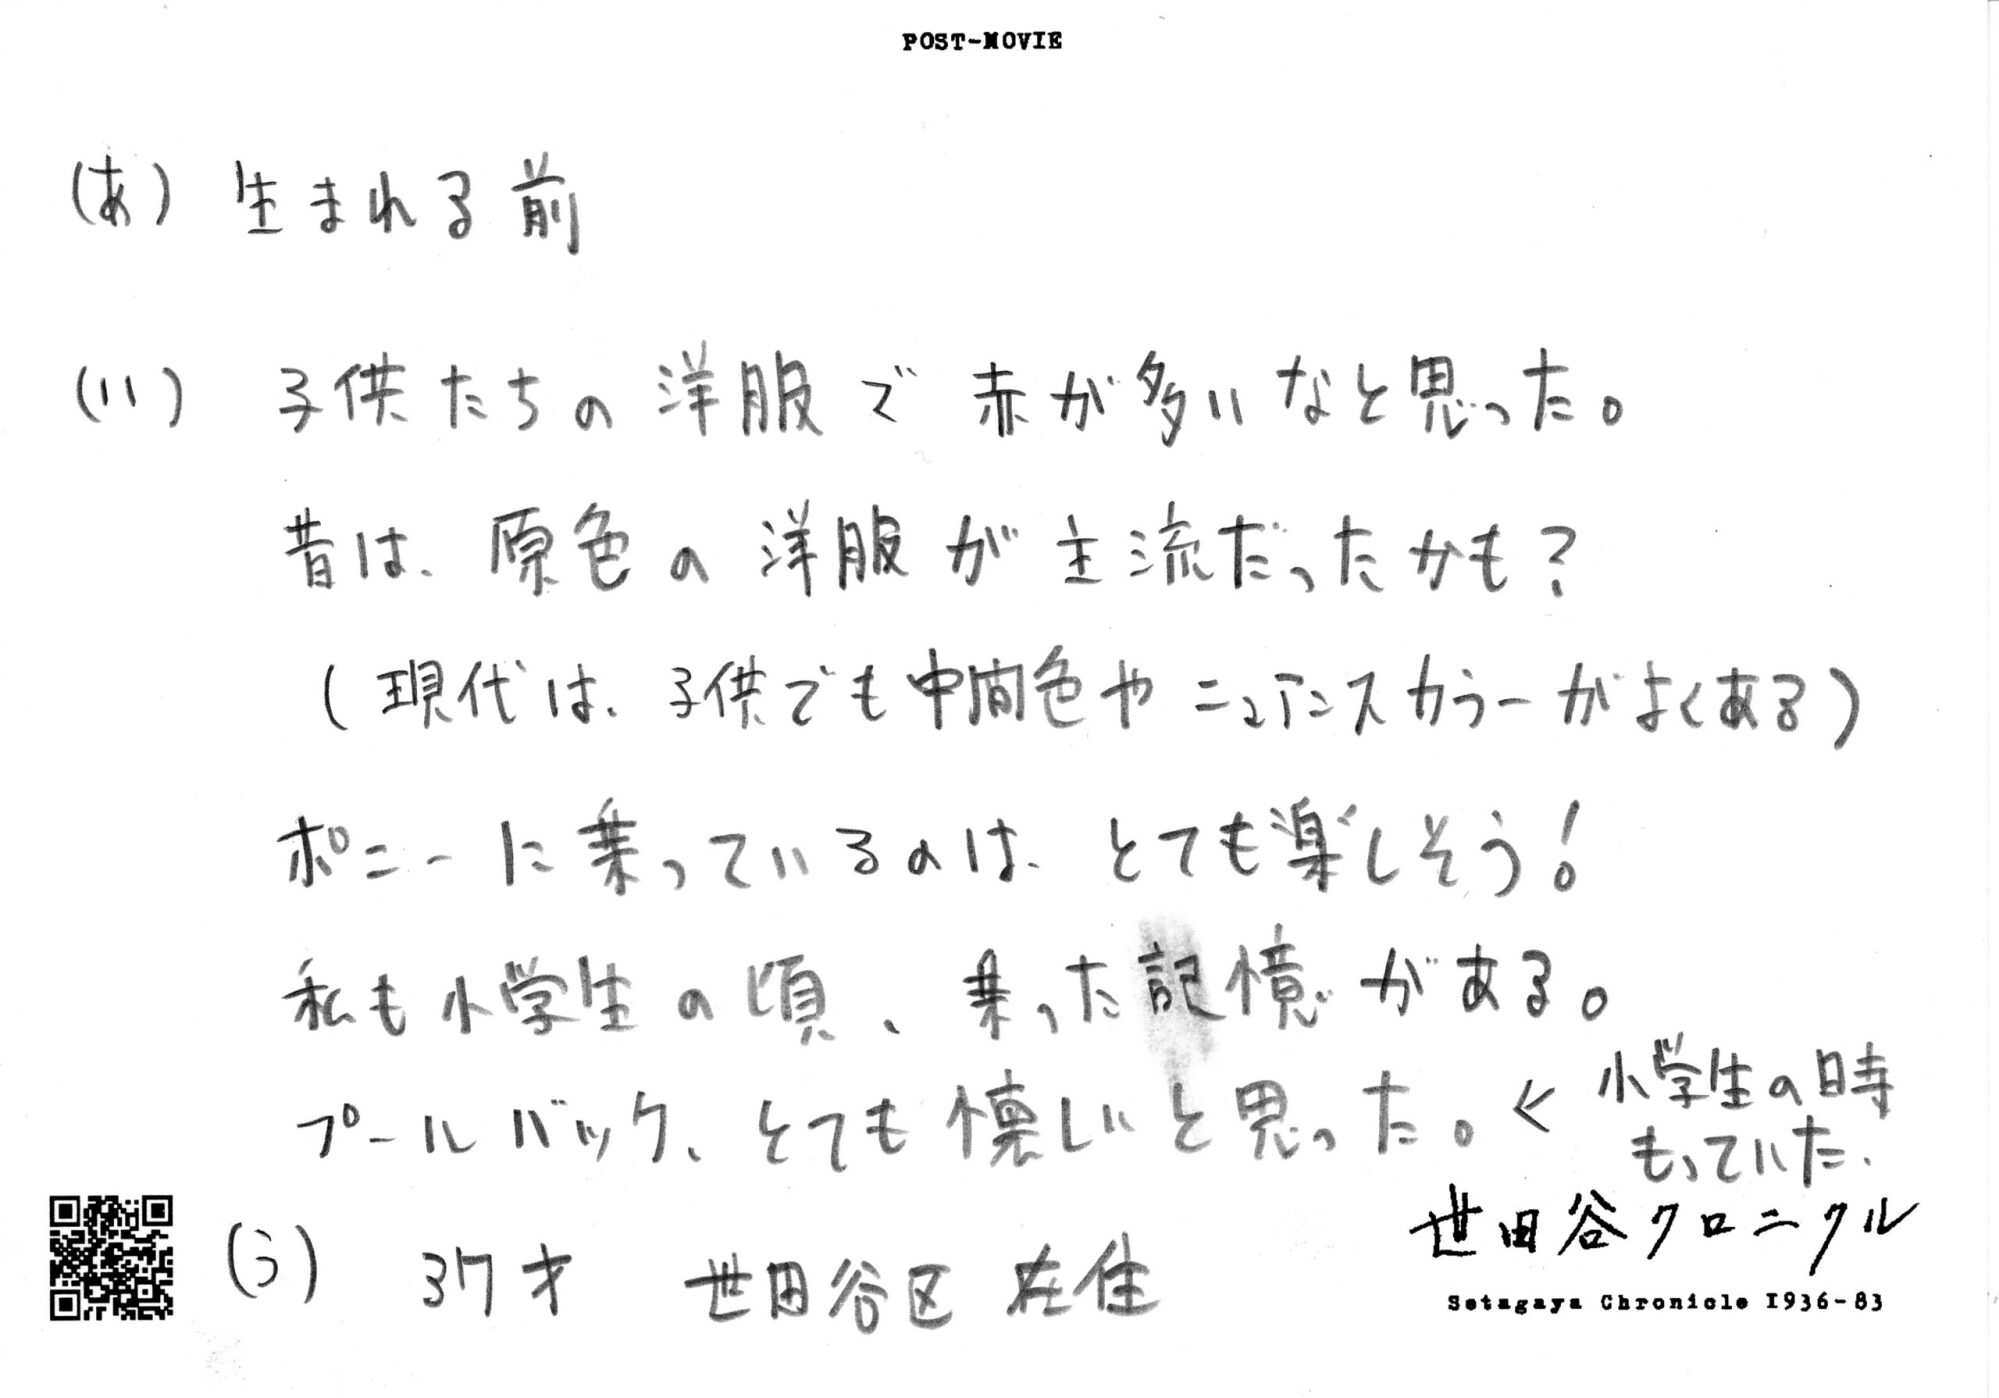 POST-MOVIE
(あ) 生まれる前
(い) 子供たちの洋服で赤が多いなと思った。
昔は、原色の洋服が主流だったかも?
(現代は、子供でも中間色やニュアンスカラーがよくある)
ポニーに乗っているのは、とても楽しそう!
私も小学生の頃、乗った記憶がある。
プールバック、とても懐しいと思った。<小学生の時
もっていた.
(う) 37才 世田谷区在住
世田谷クロニクル
Setagaya Chronicle 1936-83